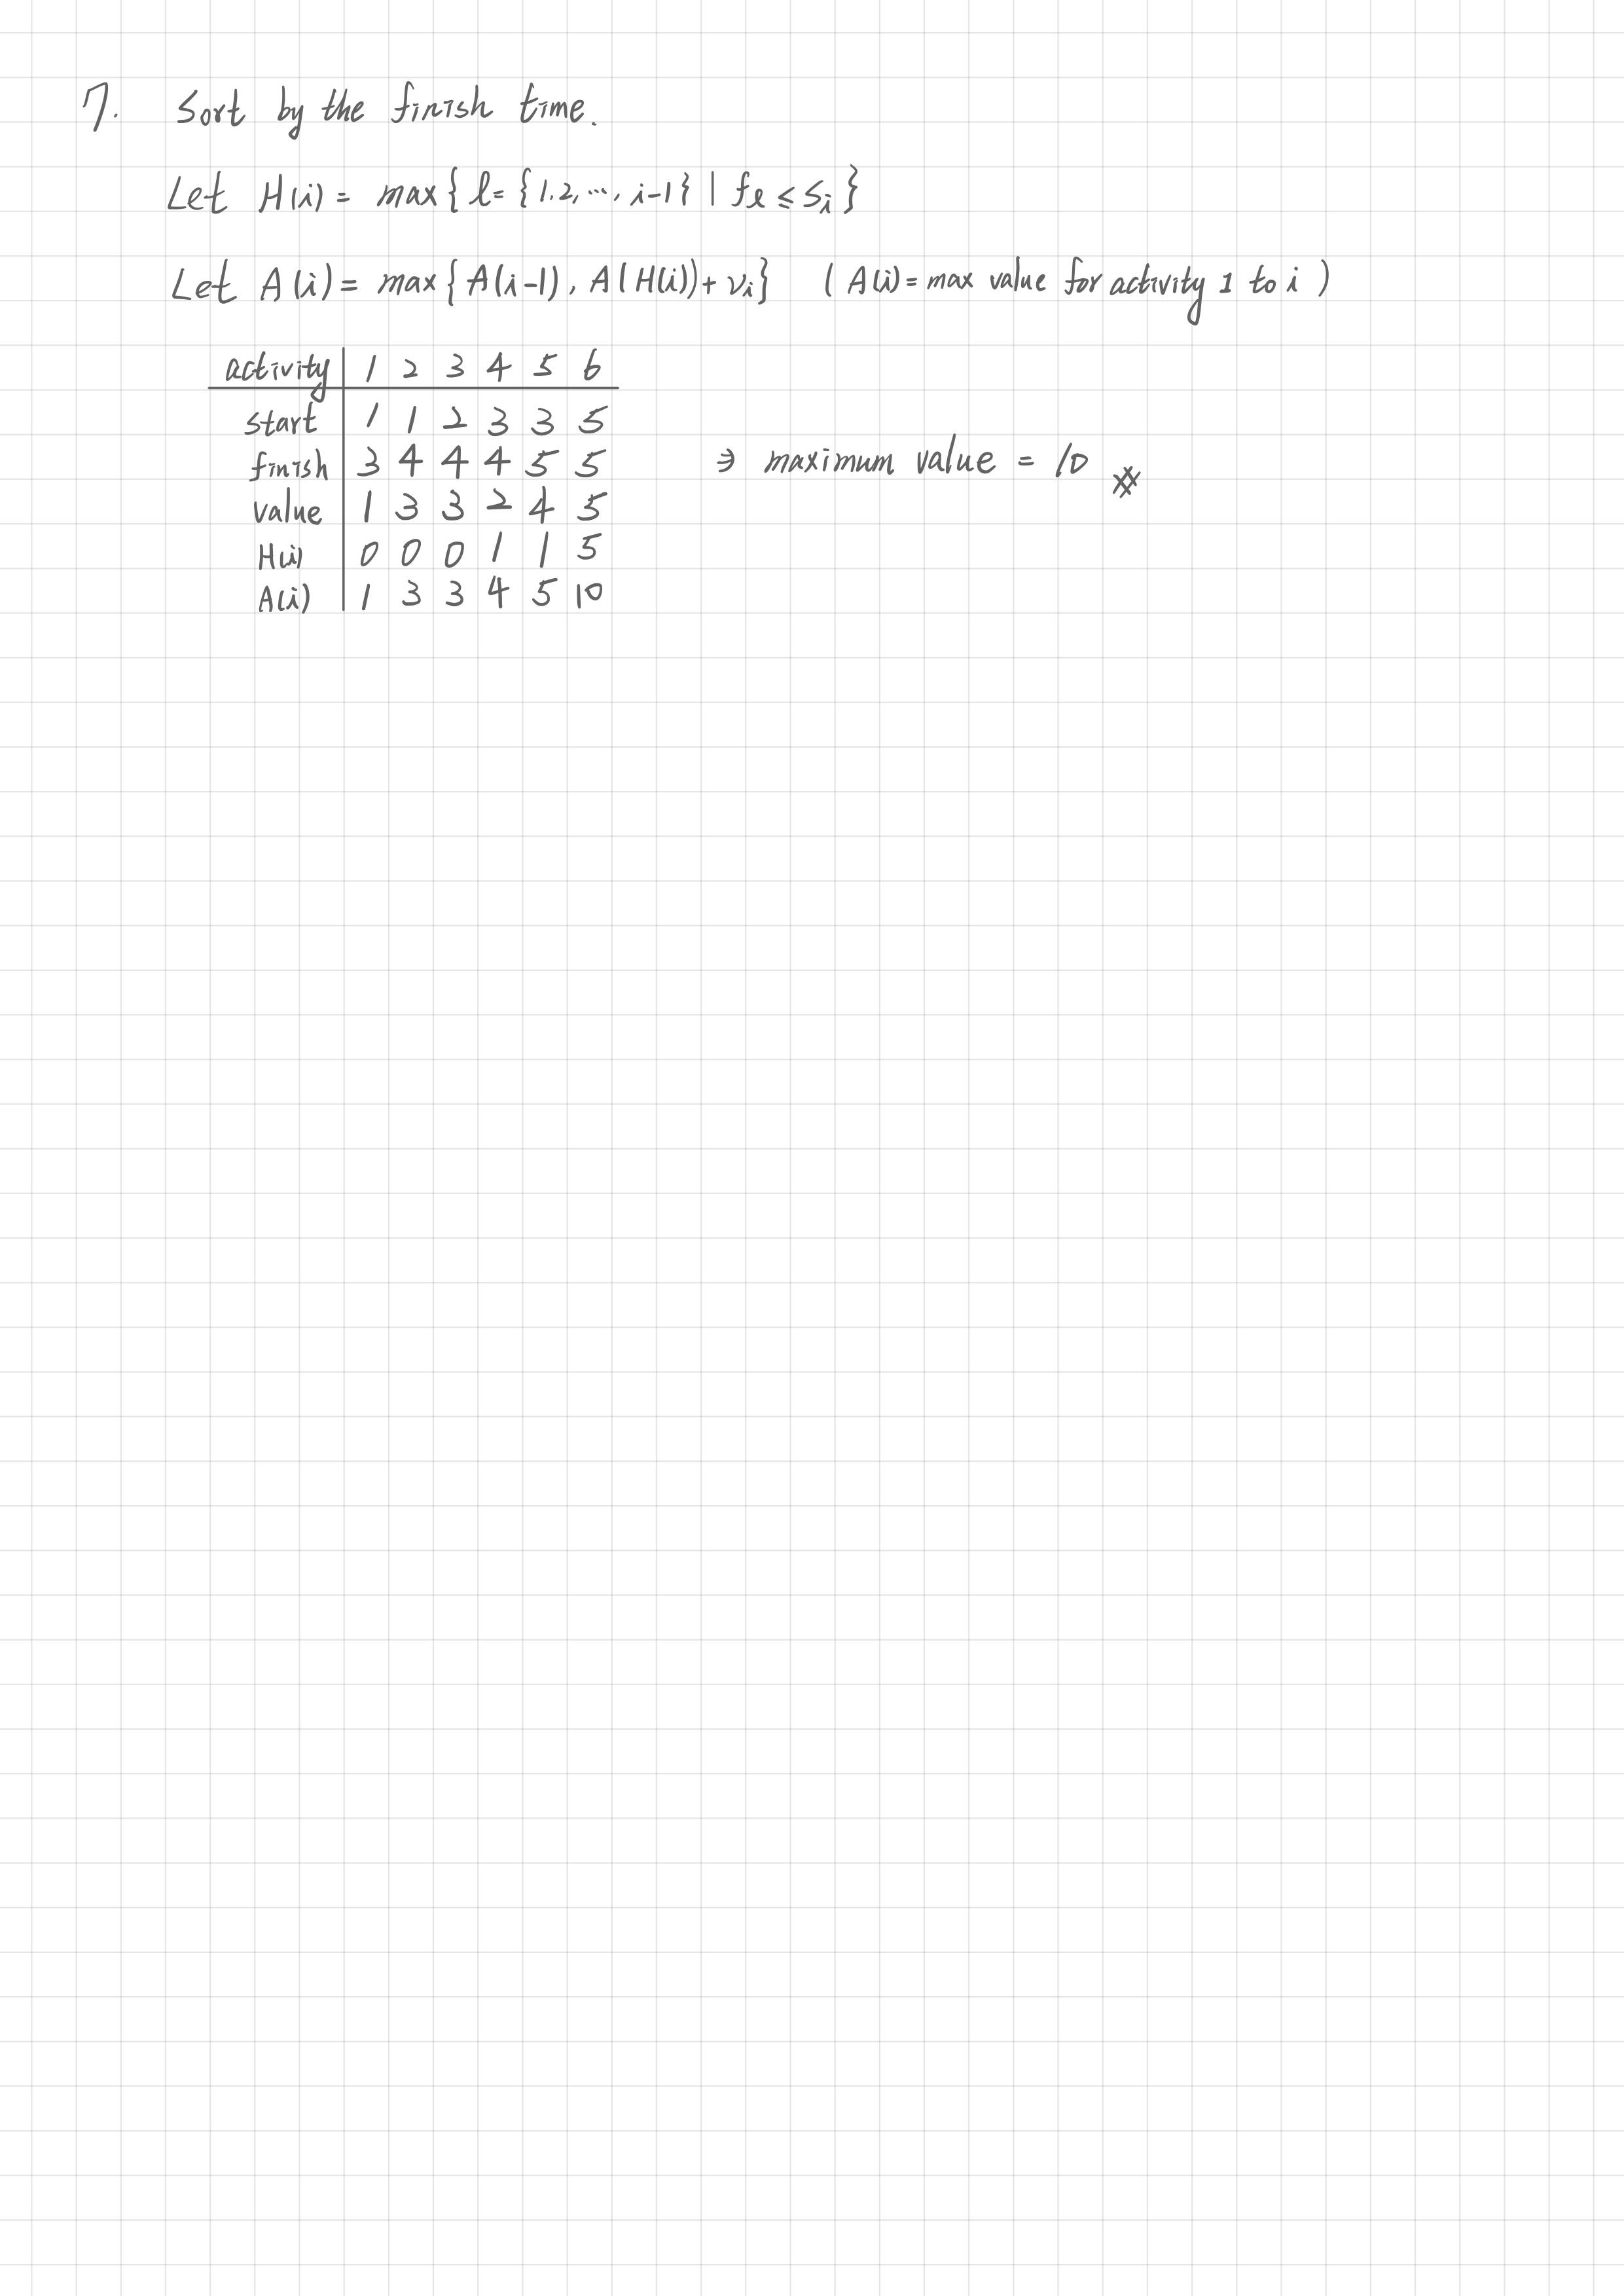 7. Sort by the finish time.
Let H(i) = max{ l = {1.2, ..., i-1} | fₗ ≤ Sᵢ }
Let A(i) = max{ A(i-1), A(H(i)) + vᵢ } ( A(i) = max value for activity 1 to i )
activity 1 2 3 4 5 6
start 1 1 2 3 3 5
finish 3 4 4 4 5 5
value 1 3 3 2 4 5
H(i) 0 0 0 1 1 5
A(i) 1 3 3 4 5 10
∋ maximum value = 10